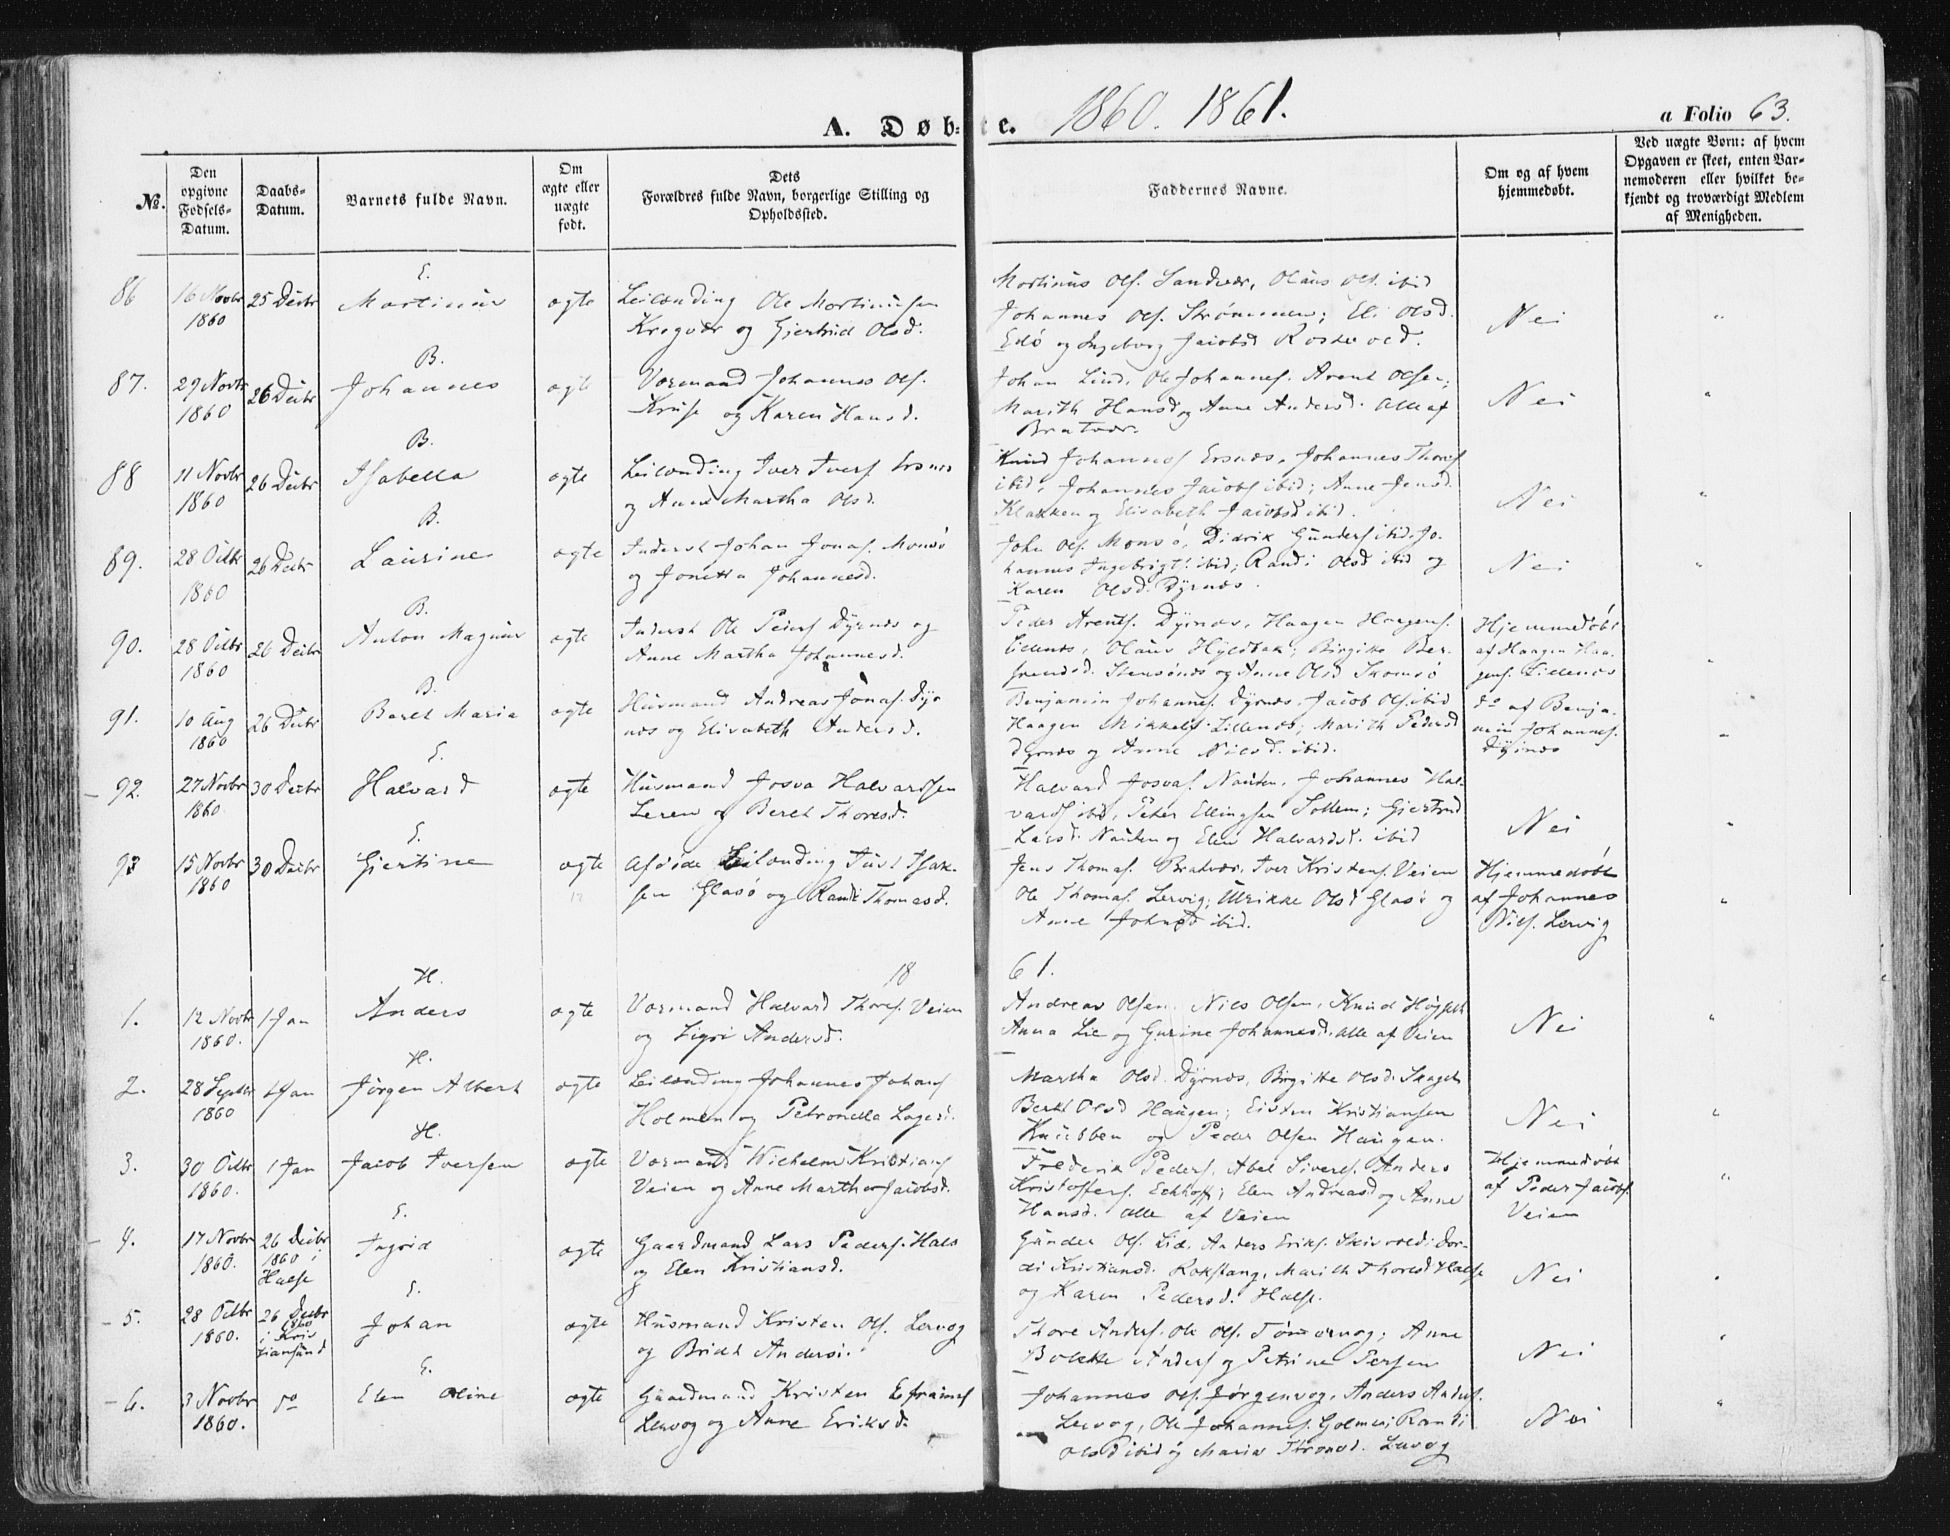 A. Døbte. 1860. 1861. a Folio 63.
No.
Den opgivne Fødsels-Datum.
Daabs-Datum.
Barnets fulde Navn.
Om ægte eller uægte født.
Dets Forældres fulde Navn, borgerlige Stilling og Opholdssted.
Faddernes Navne.
Om og af hvem hjemmedøbt.
Ved uægte Børn: af hvem Opgaven er skeet, enten Barnemoderen eller hvilket bekjendt og troværdigt Medlem af Menigheden.
E.
86 16 Novbr 25 Decbr Martinus ægte Leilænding Ole Martinusen
1860 Kregvær og Gjertrud Olsd.
Martinus Ols. Sandvær, Olaus Ols. ibid
Johannes Ols. Strømmen; Eli Olsd.
Edø og Ingeborg Jacobsd Rosvold.
Nei "
B.
87. 29 Novbr 26 Decbr Johannes ægte Vormand Johannes Ols.
1860 Kruse og Karen Hansd.
Johan Lind, Ole Johannes. Arent Olsen;
Marith Hansd og Anne Andersd. Alle af
Bratvær.
Nei "
B.
88 11 Novbr 26 Decbr Isabella ægte Leilænding Iver Ivers. Ersnes
1860 og Anne Martha Olsd.
Knud Johannes Ersnes, Johannes Thores
ibid, Johannes Jacobs ibid; Anne Jensd.
Klakken og Elisabeth Jacobsd ibid.
Nei "
B.
89. 28 Octbr 26 Decbr Laurine ægte Inderst Johan Jonas. Monsø
1860 og Jonetta Johannesd.
John Ols. Monsø, Didrik Gunders ibid, Jo-
hannes Ingebrigts ibid; Randi Olsd ibid og
Karen Olsd. Dyrnes.
Nei "
B.
90. 28 Octbr 26 Decbr Anton Magnus ægte Inderst Ole Peders Dyrnes og
1860 Anne Martha Johannesd.
Peder Arents. Dyrnes, Haagen Haagens.
Lillenes, Olaus Hyldbak; Birgitte Ber-
Stensønes og Anne Olsd Skomsø
Hjemmedøbt
af Haagen Haa-
gens. Lillenes
"
B.
91. 10 Aug 26 Decbr Bereth Maria ægte Husmand Andreas Jonas. Dyr
1860 nes og Elisabeth Andersd.
Benjamin Johannes. Dyrnes, Jacob Ols. ibid
Haagen Mikkels. Lillenes; Marith Pedersd
Dyrnes og Anne Nilsd. ibid.
do af Benja-
min Johannes.
Dyrnes
"
E.
92. 27 Novbr 30 Decbr Halvard ægte Husmand Josva Halvardsen
1860 Leren og Bereth Thoresd.
Halvard Josvas. Nausten, Johannes Hal-
vards ibid, Peter Ellingsen Sollem; Gjertrud
Larsd. Nausten og Elen Halvardsd. ibid
Nei "
E.
93 15 Novbr 30 Decbr Gjertine ægte Afdøde Leilænding Just Isak-
1860 sen Glasø og Randi Thomasd.
Jens Thomas. Bratvær, Iver Kristens. Veien
Ole Thomas. Lervig; Ulrikke Olsd Glasø og
Anne Johnsd ibid.
Hjemmedøbt
af Johannes
Nils. Lervig
"
18 61.
H.
1. 12 Novbr 1 Jan Anders ægte Vormand Halvard Thores. Veien
1860. og Sigri Andersd.
Andreas Olsen, Nils Olsen, Knud
Anna Lie og Gurine Johannesd. Alle af Veien
Nei "
H.
2. 28 Septbr 1 Jan Jørgen Albert ægte Leilænding Johannes Johans
1860 Holmen og Petronella Lagesd.
Martha Olsd. Dyrnes, Birgitte Olsd.
Bereth Olsd Haugen; Eisten Kristiansen
Knubben og Peder Olsen Haugen.
Nei "
H.
3. 30 Octbr 1 Jan Jacob Iversen ægte Vormand Wilhelm Kristians
1860. Veien og Anne Martha Jacobsd.
Frederik Peders. Abel Sivers. Anders
Kristoffers. Eckhoff; Elen Andreasd og Anne
Hansd. alle af Veien
Hjemmedøbt
af Peder Jacobs.
Veien
"
E.
4. 17 Novbr 26 Decbr Ingrid ægte Gaardmand Lars Peders. Hals
1860. 1860 i Halse og Elen Kristiansd.
Gunder Ols. Lid, Anders Eriks. Skivold; Dor-
di Kristiansd. Rokstang, Marith Thoresd Halse
og Karen Pedersd. Halse.
Nei "
E.
5. 28 Octbr 26 Decbr Johan ægte Husmand Kristen Ols. Lervog
1860. 1860 i Kristiansund og Brideth Andersd.
Thore Anders. Ole Ols. Tømmervog; Anne
Bolette Anders og Petrine Persen
Nei "
E.
6. 3 Novbr do Elen Oline ægte Gaardmand Kristen Efraims
1860. Lervog og Anne Eriksd.
Johannes Ols. Jørgenvog, Anders Anders.
Lervog, Ole Johannes. Golmen; Randi
Olsd ibid og Maria Lervog
Nei "